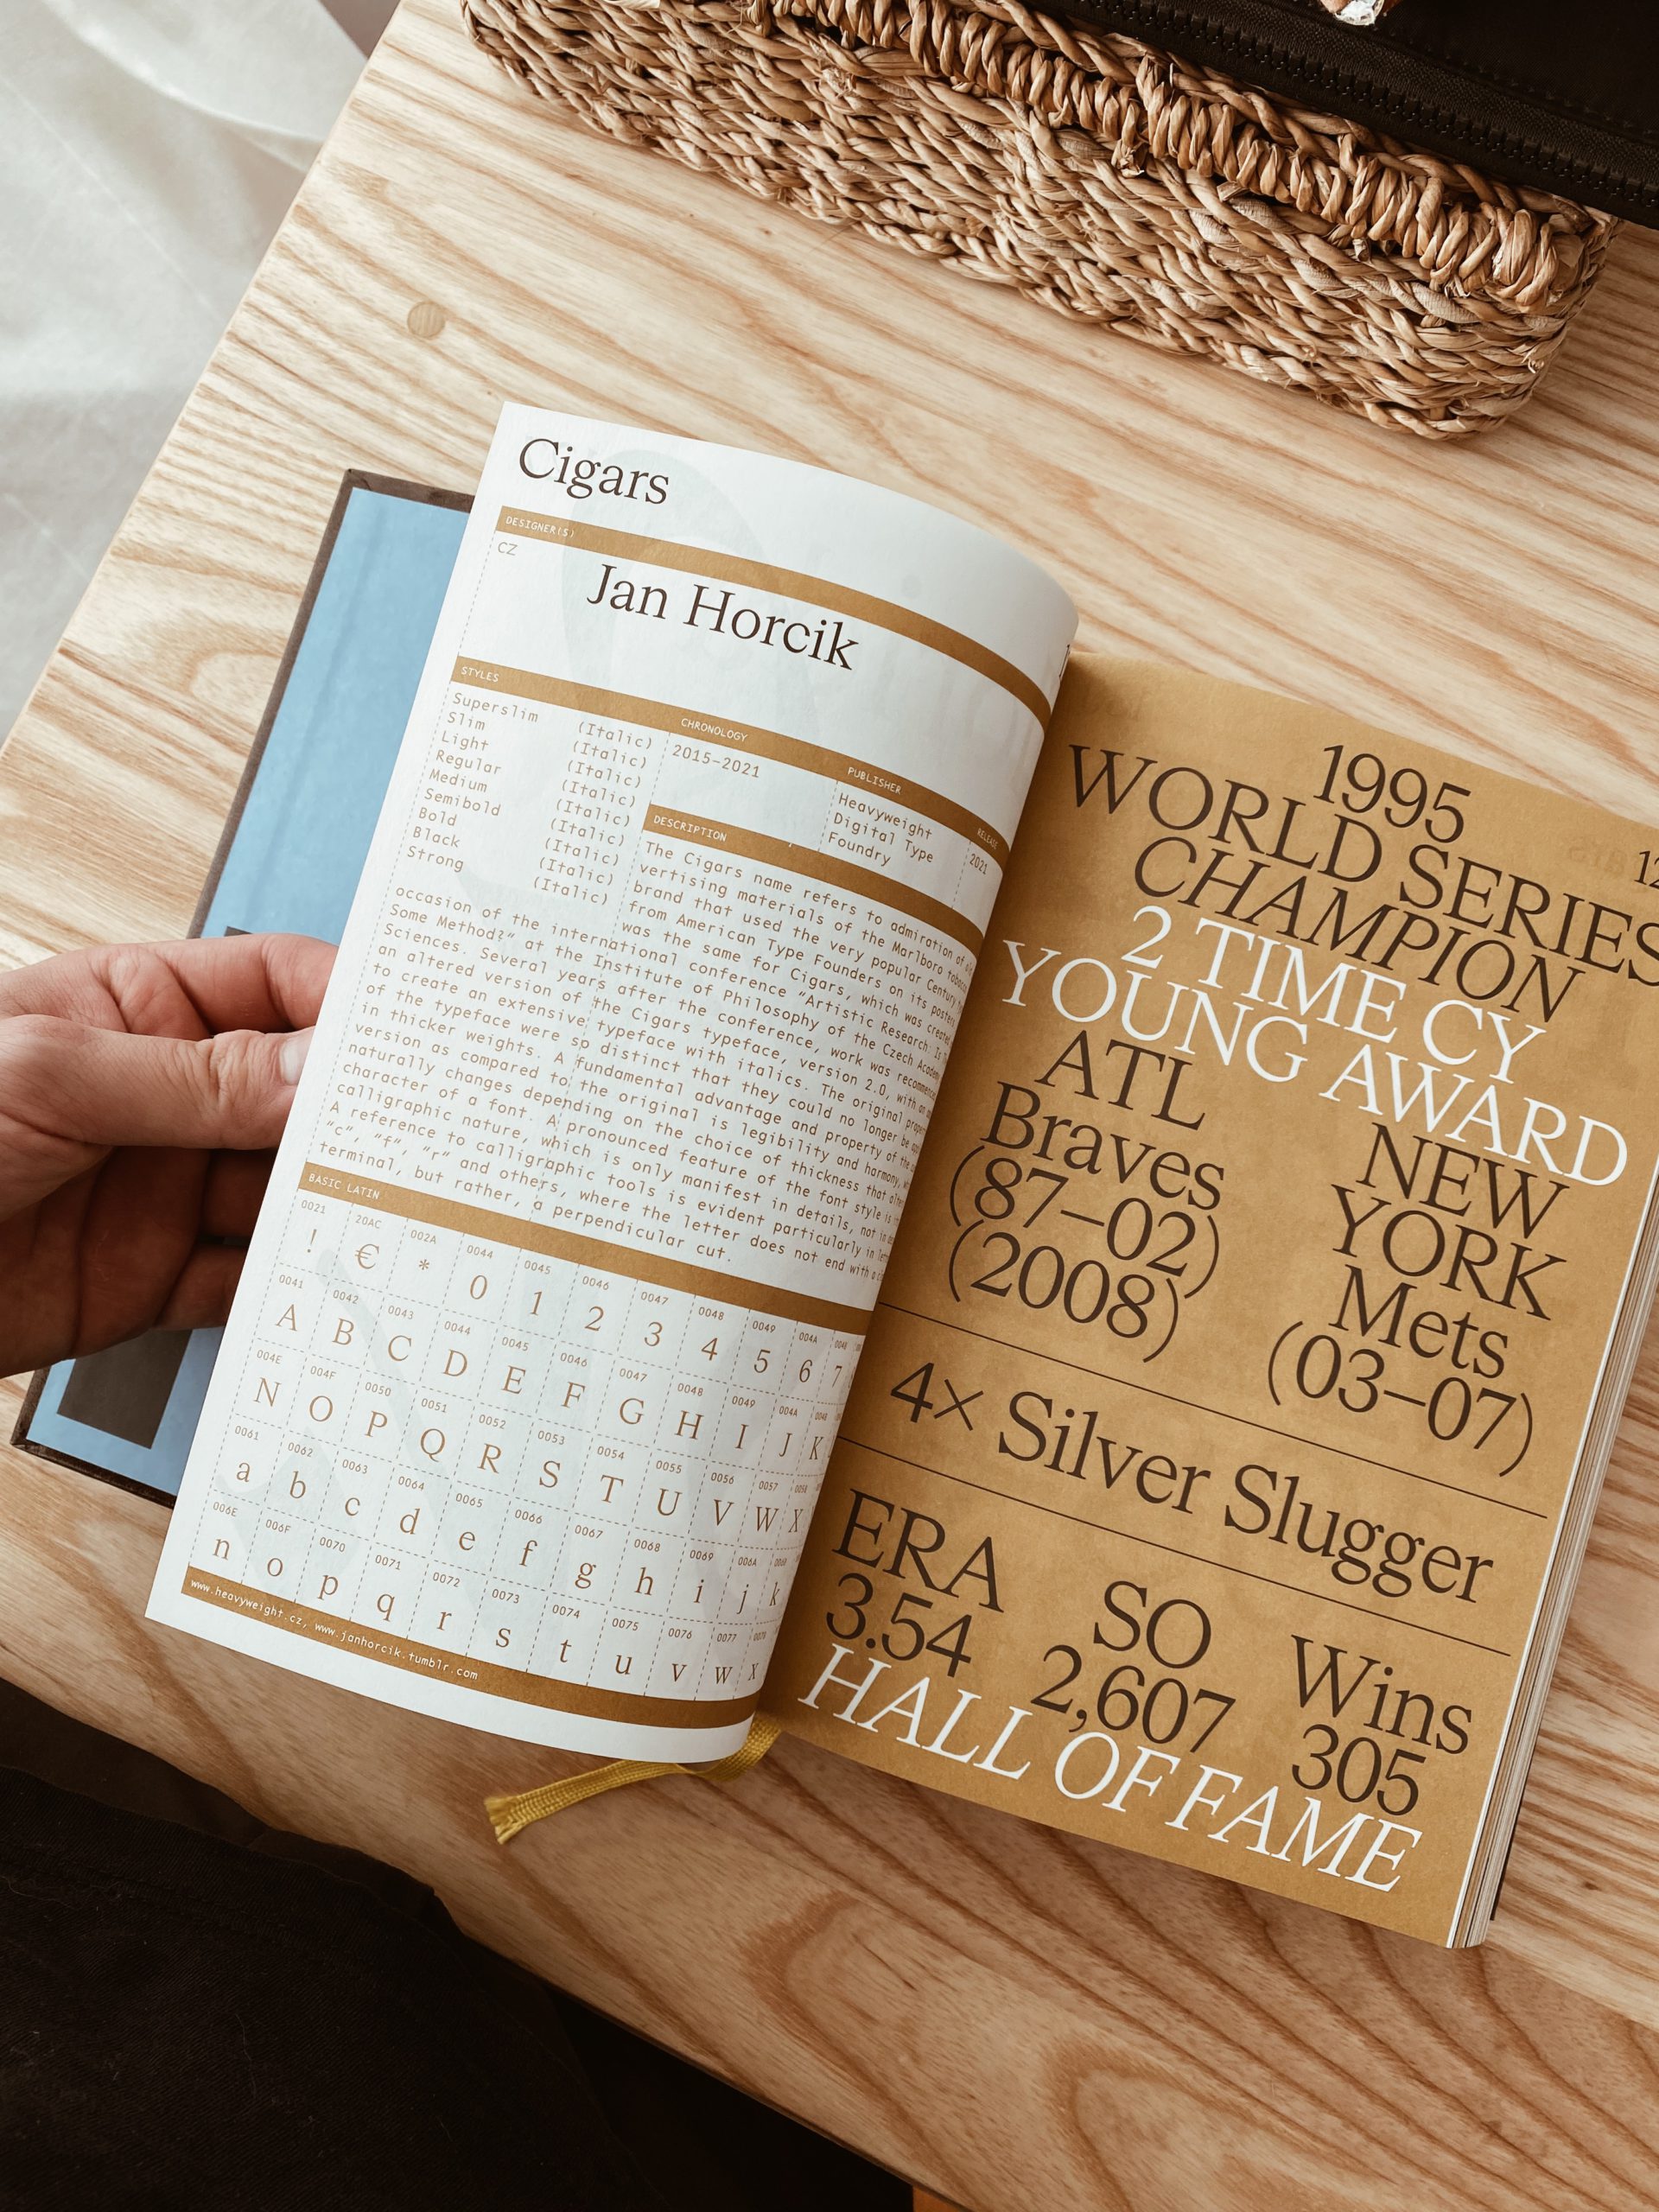 Cigars
DESIGNER(S)
CZ
Jan Horcik
STYLES
Superslim (Italic)
Slim (Italic)
Light (Italic)
Regular (Italic)
Medium (Italic)
Semibold (Italic)
Bold (Italic)
Black (Italic)
Strong (Italic)
CHRONOLOGY
2015–2021
PUBLISHER
Heavyweight
Digital Type
Foundry
RELEASE
2021
DESCRIPTION
The Cigars name refers to admiration of
vertising materials of the Marlboro
brand that used the very popular Century
from American Type Founders on its
was the same for Cigars, which was created
occasion of the international conference “Artistic Research: Is
Some Method?” at the Institute of Philosophy of the Czech
Sciences. Several years after the conference, work was
an altered version of the Cigars typeface, version 2.0, with
to create an extensive typeface with italics. The original
of the typeface were so distinct that they could no longer be
in thicker weights. A fundamental advantage and property of the
version as compared to the original is legibility and harmony,
naturally changes depending on the choice of thickness that
character of a font. A pronounced feature of the font style is
calligraphic nature, which is only manifest in details, not in
A reference to calligraphic tools is evident particularly in
“c”, “f”, “r” and others, where the letter does not end with a
terminal, but rather, a perpendicular cut.
BASIC LATIN
0021 20AC 002A 0044 0045 0046 0047 0048 0049 004A
! € * 0 1 2 3 4 5 6 7
0041 0042 0043 0044 0045 0046 0047 0048 0049 004A
A B C D E F G H I J K
004E 004F 0050 0051 0052 0053 0054 0055 0056 0057 0058
N O P Q R S T U V W X
0061 0062 0063 0064 0065 0066 0067 0068 0069 006A
a b c d e f g h i j k
006E 006F 0070 0071 0072 0073 0074 0075 0076 0077
n o p q r s t u v w x
www.heavyweight.cz, www.janhorcik.tumblr.com
12
1995
WORLD SERIES
CHAMPION
2 TIME CY
YOUNG AWARD
ATL
Braves
(87–02)
(2008)
NEW
YORK
Mets
(03–07)
4× Silver Slugger
ERA
3.54
SO
2,607
Wins
305
HALL OF FAME